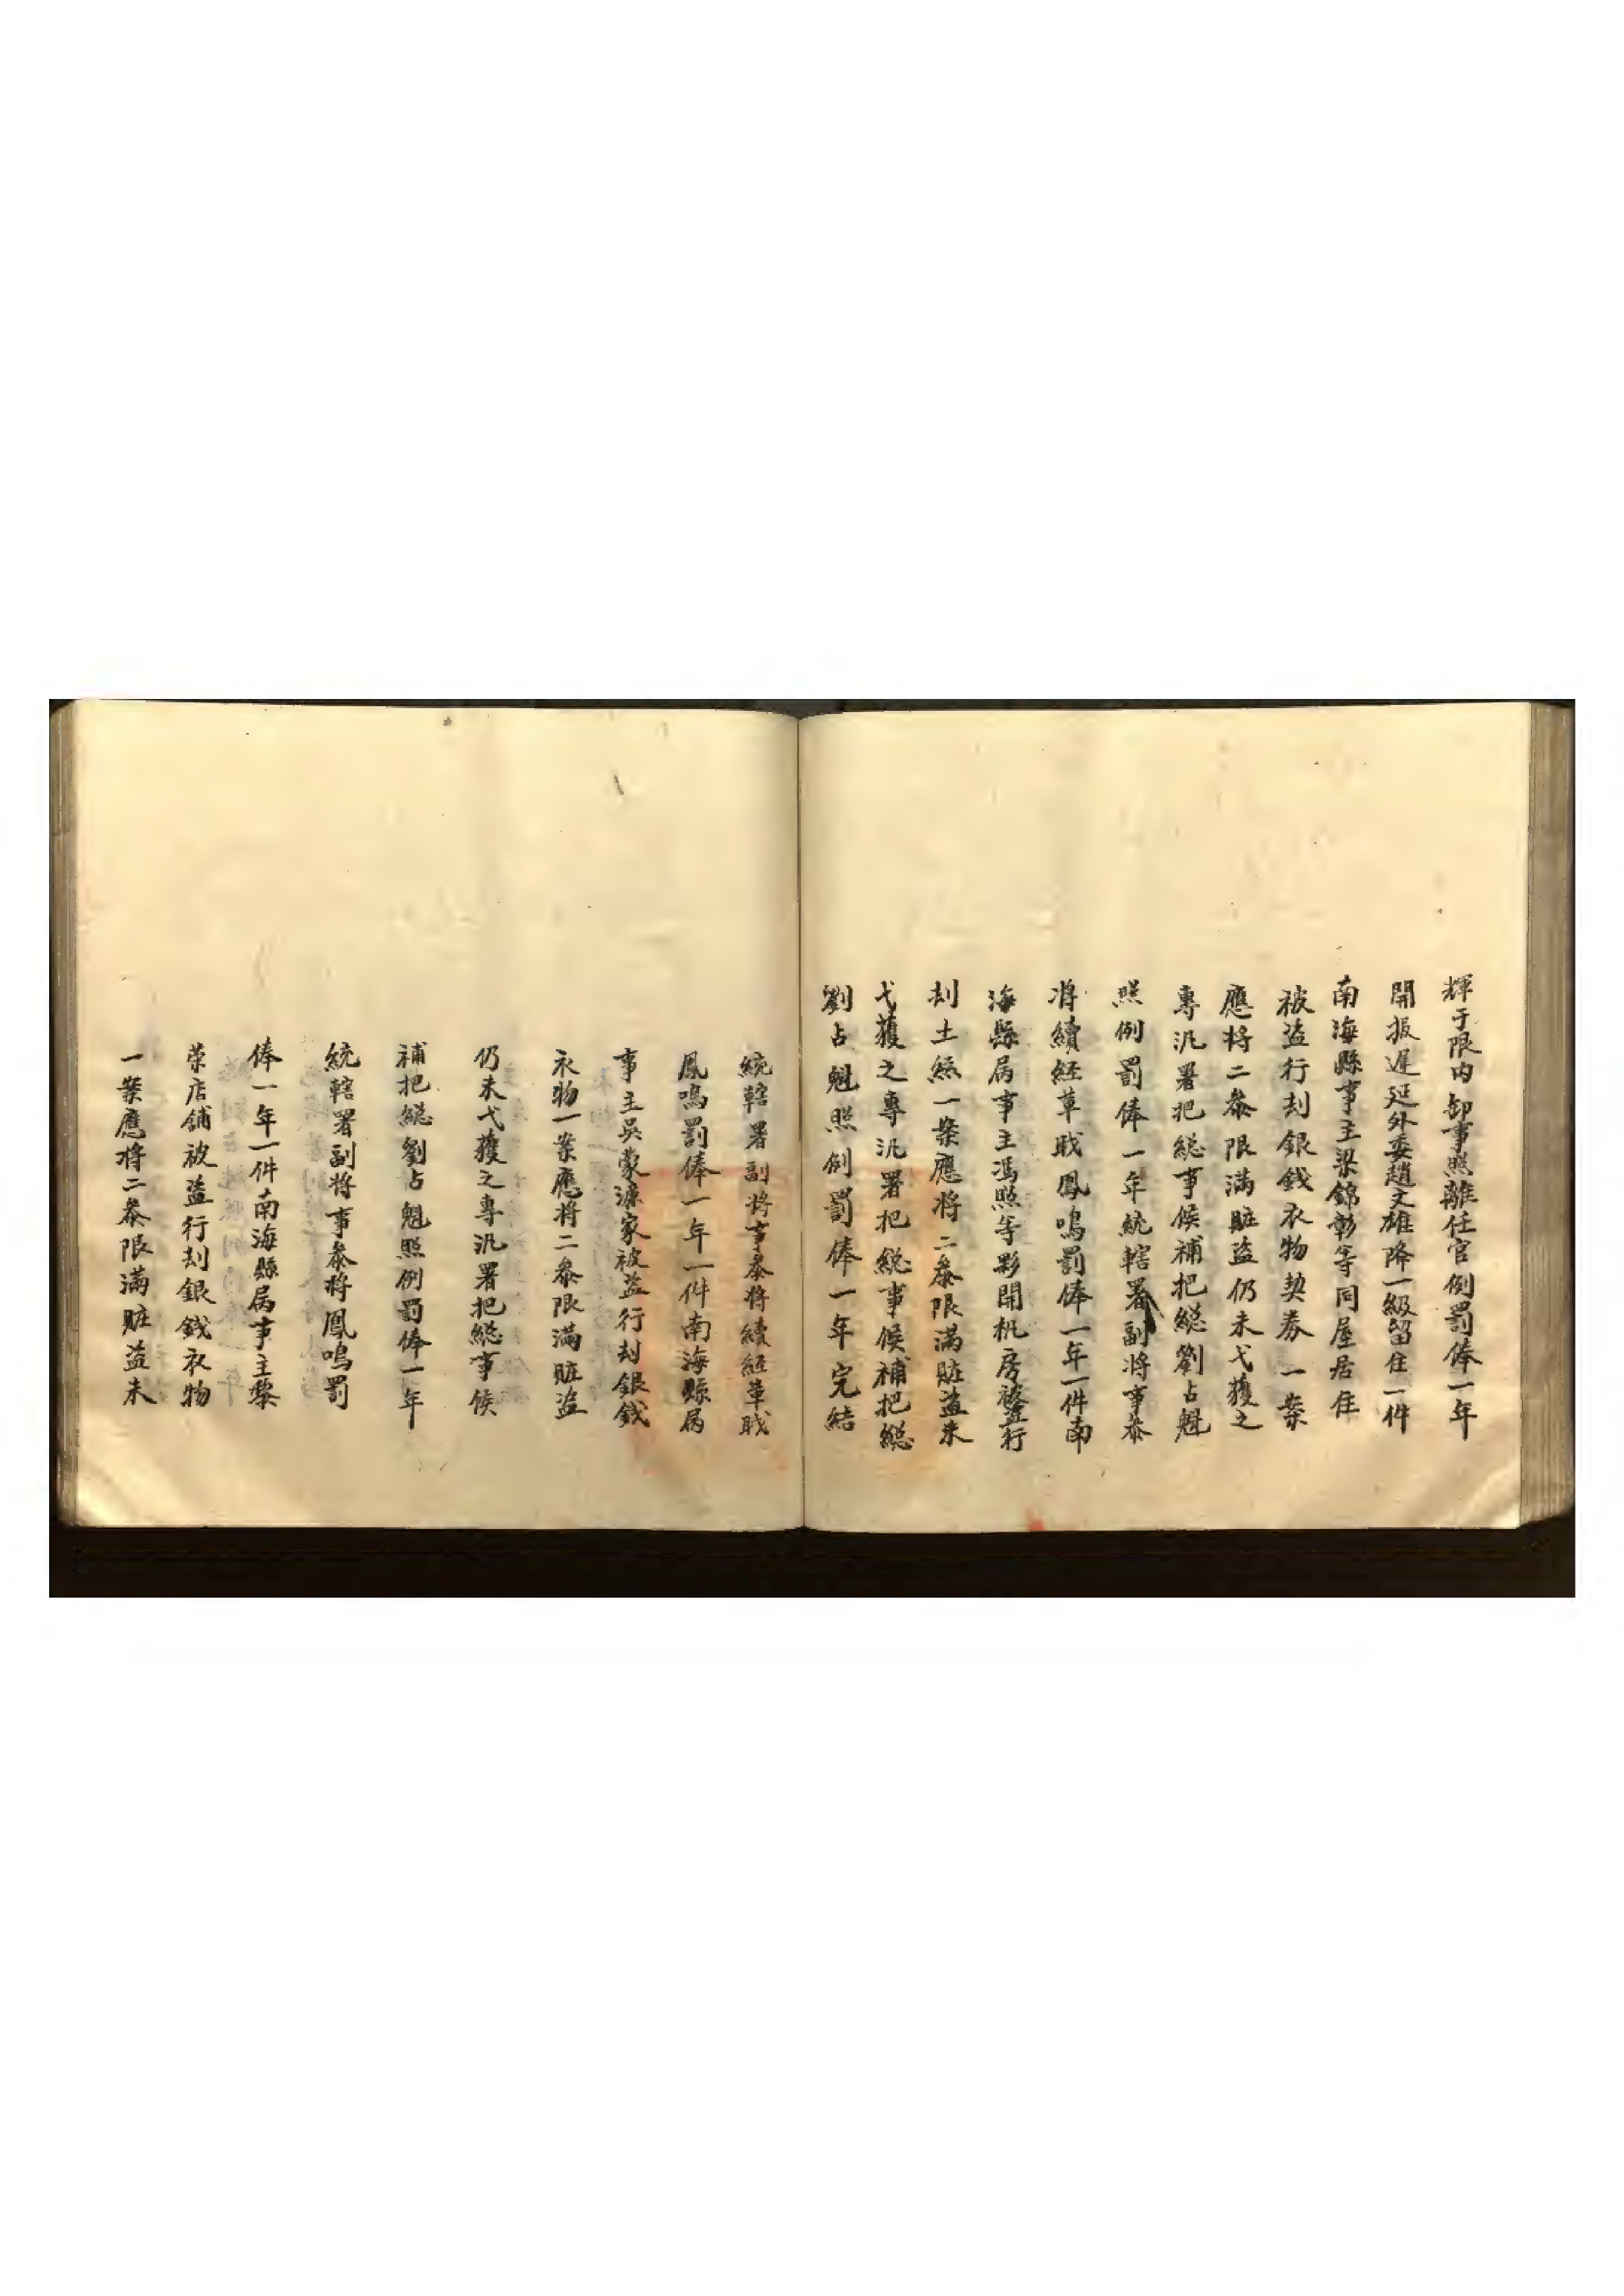 輝于限内卸事照離任官例罰俸一年
開报遲延外委趙文雄降一級留任一件
南海縣事主梁錦彰等同屋居住
被盗行刦銀錢衣物契券一案
應將二叅限滿賍盗仍未弋獲之
專汛署把総事候補把総劉占魁
照例罰俸一年統轄署副将事叅
将續経革職鳳鳴罰俸一年一件南
海縣属事主馮照等夥開机房被盗行
刦土絲一案應将二叅限滿賍盗未
弋獲之專汛署把総事候補把総
劉占魁照例罰俸一年完結
統轄署副将事叅将續經革職
鳳鳴罰俸一年一件南海縣属
事主吳蒙濂家被盗行刦銀錢
衣物一案應将二叅限滿賍盗
仍未弋獲之專汛署把総事候
補把総劉占魁照例罰俸一年
統轄署副将事叅将鳳鳴罰
俸一年一件南海縣属事主黎
荣店舖被盗行刦銀錢衣物
一案應将二叅限滿賍盗未